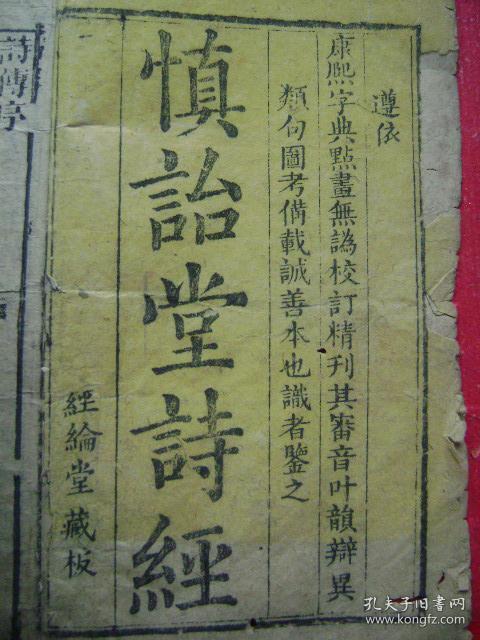 遵依
康熙字典點畫無譌校訂精刊其審音叶韻辯異
類句圖考俻載誠善本也識者鑒之
慎詒堂詩經
經綸堂藏板
詩傳序
孔夫子旧书网
kongfz.com